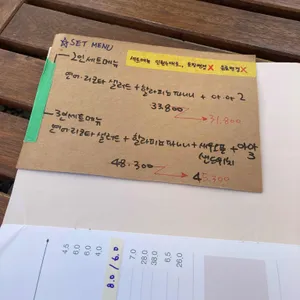 ☆SET MENU
2인세트메뉴
연어 리코타 샐러드 + 할라피뇨 파니니 + 아아 2
33.800
31.800
3인세트메뉴
연어리코타 샐러드 + 할라피뇨 파니니 + 새우으롤 + 아아 3
샌드위치
48.300
45.300
4.5
6.0
4.0
8.0 / 6.0
7.0
28.0
38.0
6.5
26.0